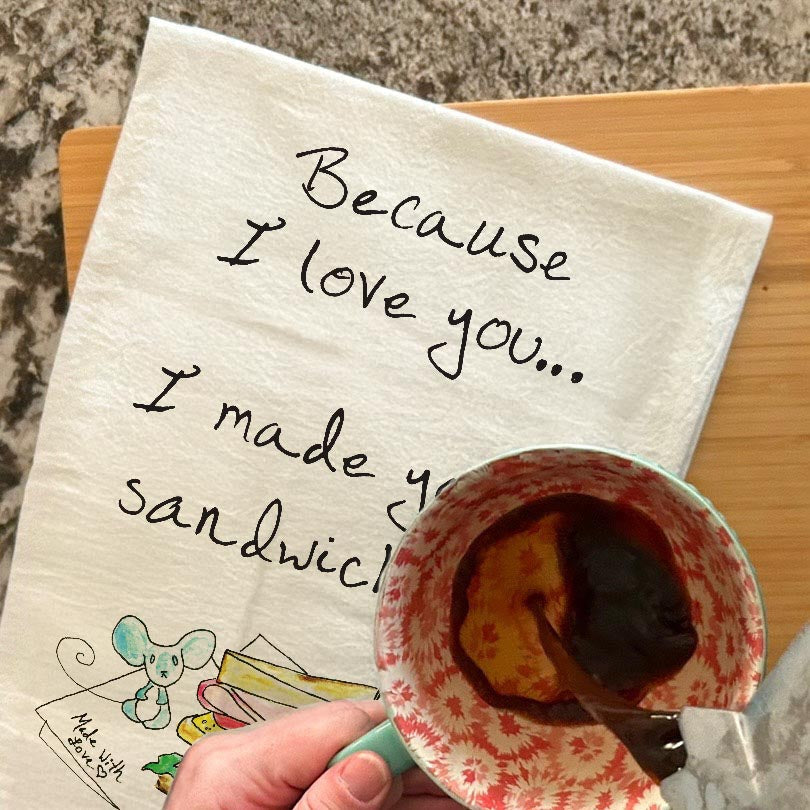 Because
I love you...
I made
Made With
Love